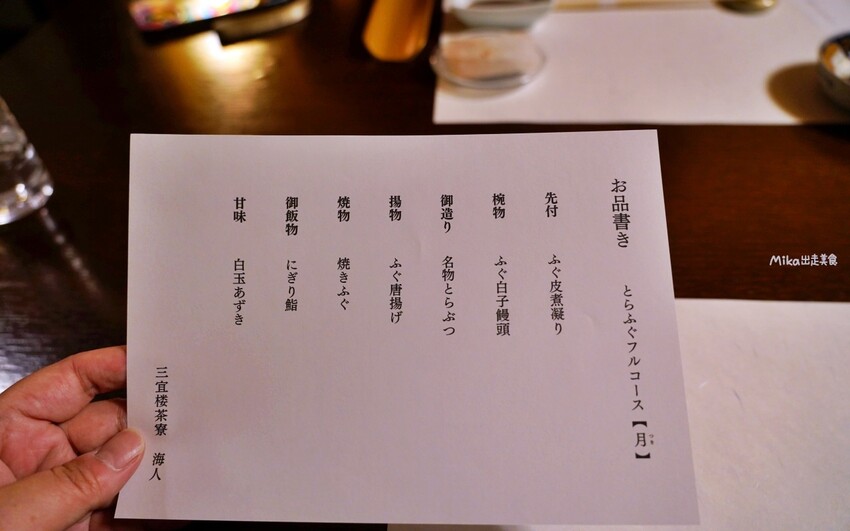 お品書き　とらふぐフルコース【月】
つき
先付　ふぐ皮煮凝り
椀物　ふぐ白子饅頭
御造り　名物とらぶつ
揚物　ふぐ唐揚げ
焼物　焼きふぐ
御飯物　にぎり鮨
甘味　白玉あずき
三宜楼茶寮　海人
Mika出走美食